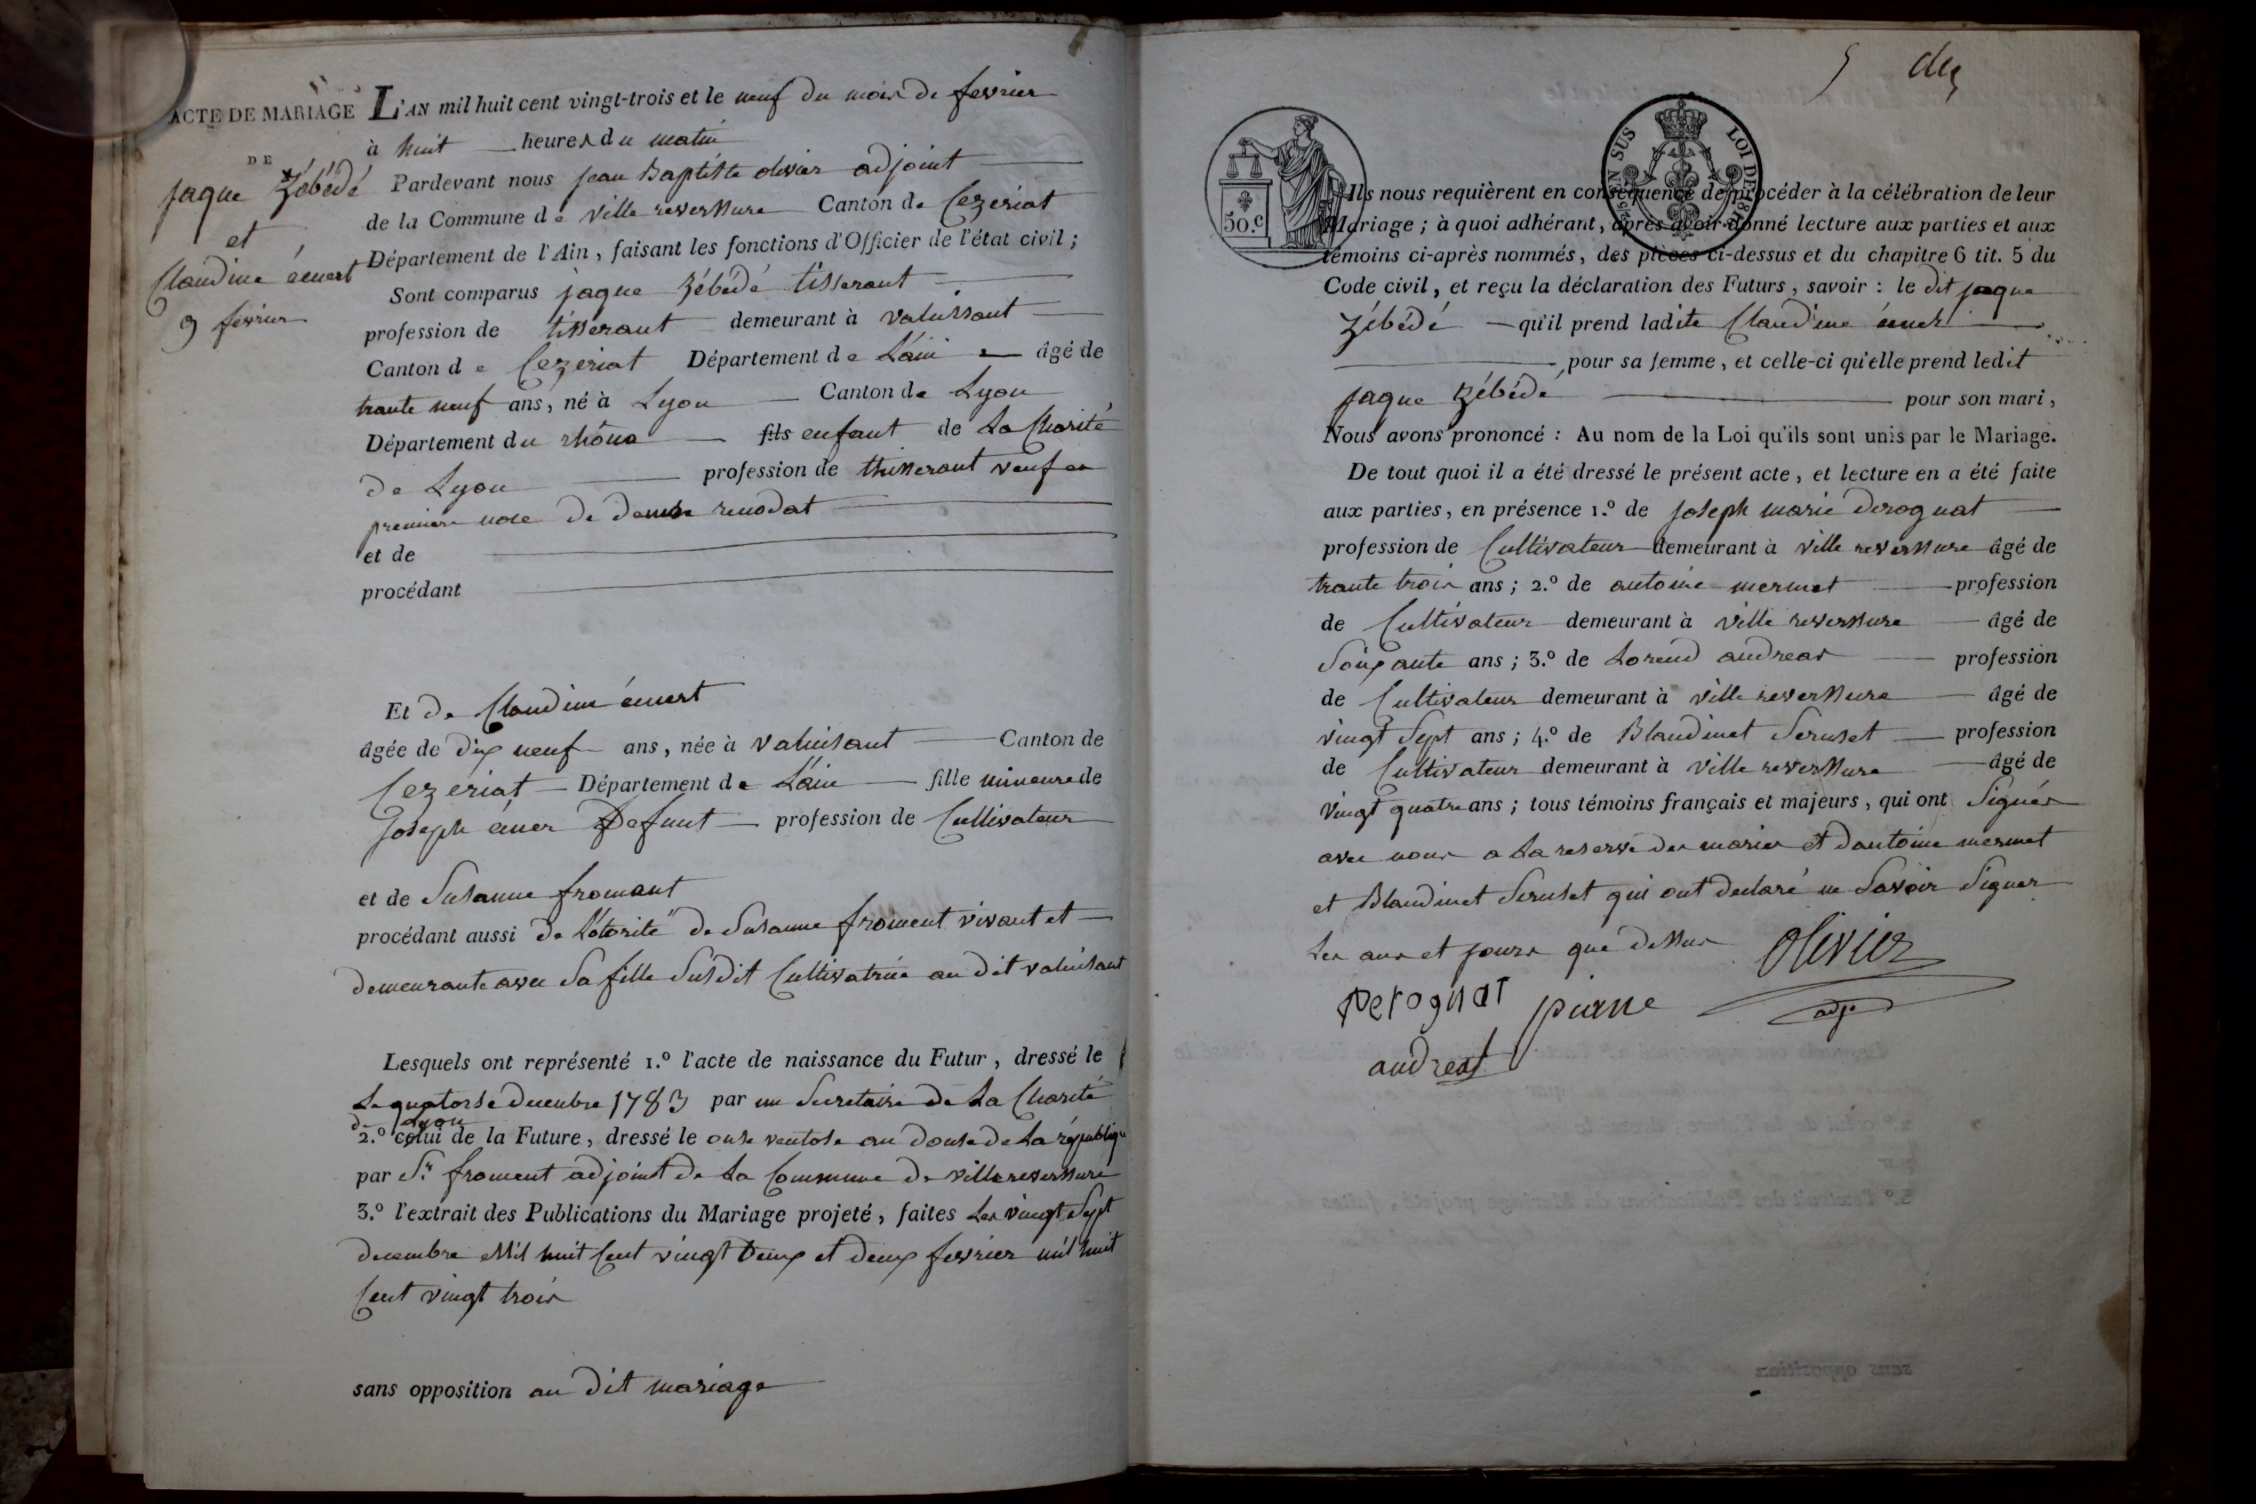 ACTE DE MARIAGE
DE
jaque Zébédé
et
Claudine émert
9 février
L'AN mil huit cent vingt-trois et le neuf du mois de fevrier
à huit heures du matin
Pardevant nous jean Baptiste olivier adjoint
de la Commune de ville reverssure Canton de Cezeriat
Département de l'Ain, faisant les fonctions d'Officier de l'état civil;
Sont comparus jaque zébédé tisserant
profession de tisserant demeurant à valuissant
Canton de Cezeriat Département de L'ain âgé de
trante neuf ans, né à Lyon Canton de Lyon
Département du rhône fils enfant de La Charité
de Lyon profession de thisserant veuf en
premiere noce de denise renodat
et de
procédant
Et de Claudine émert
âgée de dix neuf ans, née à valuisant Canton de
Cezeriat Département de L'ain fille mineure de
Joseph émer Defunt profession de Cultivateur
et de Susanne fromant
procédant aussi de L'otorité de Susanne froment vivant et
demeurante avec Sa fille Susdit Cultivatrice au dit valuisant
Lesquels ont représenté 1.º l'acte de naissance du Futur, dressé le
Le quatorse decembre 1783 par un Secretaire de La Charité
de Lyon
2.º celui de la Future, dressé le onse ventose an douse de La républiq
par Sr. froment adjoint de La Commune de ville reverssure
3.º l'extrait des Publications du Mariage projeté, faites Les vingt Sept
decembre Mil huit Cent vingt deux et deux fevrier mil huit
Cent vingt trois
sans opposition au dit mariage
5 des
50.C
EN SUS
LOI DE 1816
Ils nous requièrent en conséquence de procéder à la célébration de leur
Mariage; à quoi adhérant, après avoir donné lecture aux parties et aux
témoins ci-après nommés, des pièces ci-dessus et du chapitre 6 tit. 5 du
Code civil, et reçu la déclaration des Futurs, savoir: le dit jaque
zébédé qu'il prend ladite Claudine émer
pour sa femme, et celle-ci qu'elle prend ledit
jaque zébédé pour son mari,
Nous avons prononcé: Au nom de la Loi qu'ils sont unis par le Mariage.
De tout quoi il a été dressé le présent acte, et lecture en a été faite
aux parties, en présence 1.º de joseph marie derognat
profession de Cultivateur demeurant à ville reverssure âgé de
trante trois ans; 2.º de antoine mermet profession
de Cultivateur demeurant à ville reverssure âgé de
Soixante ans; 3.º de Lorend andreas profession
de Cultivateur demeurant à ville reverssure âgé de
vingt Sept ans; 4.º de Blandinet Seruset profession
de Cultivateur demeurant à ville reverssure âgé de
vingt quatre ans; tous témoins français et majeurs, qui ont Signés
avec nous a La reserve des maries et d'antoine mermet
et Blandinet Seruset qui ont declaré ne Savoir Signer
Les ans et jours que dessus olivier
Derognat pierre adjt
andreas